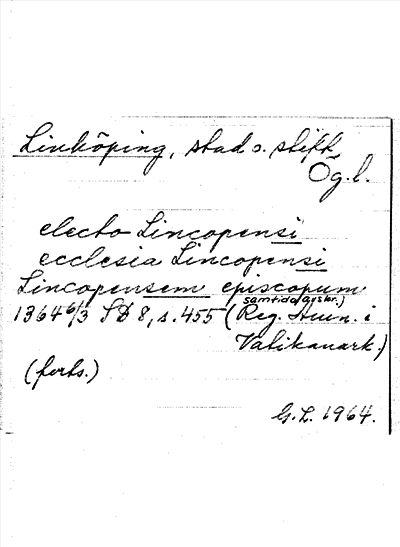 Linköping, stad o. stift,
Ög.l.
electo Lincopensi
ecclesia Lincopensi
Lincopensem episcopum
samtida avskr.)
1364 6/3 SD 8, s. 455 (Reg. Avin. i
Vatikanark.)
(forts.)
G. L. 1964.